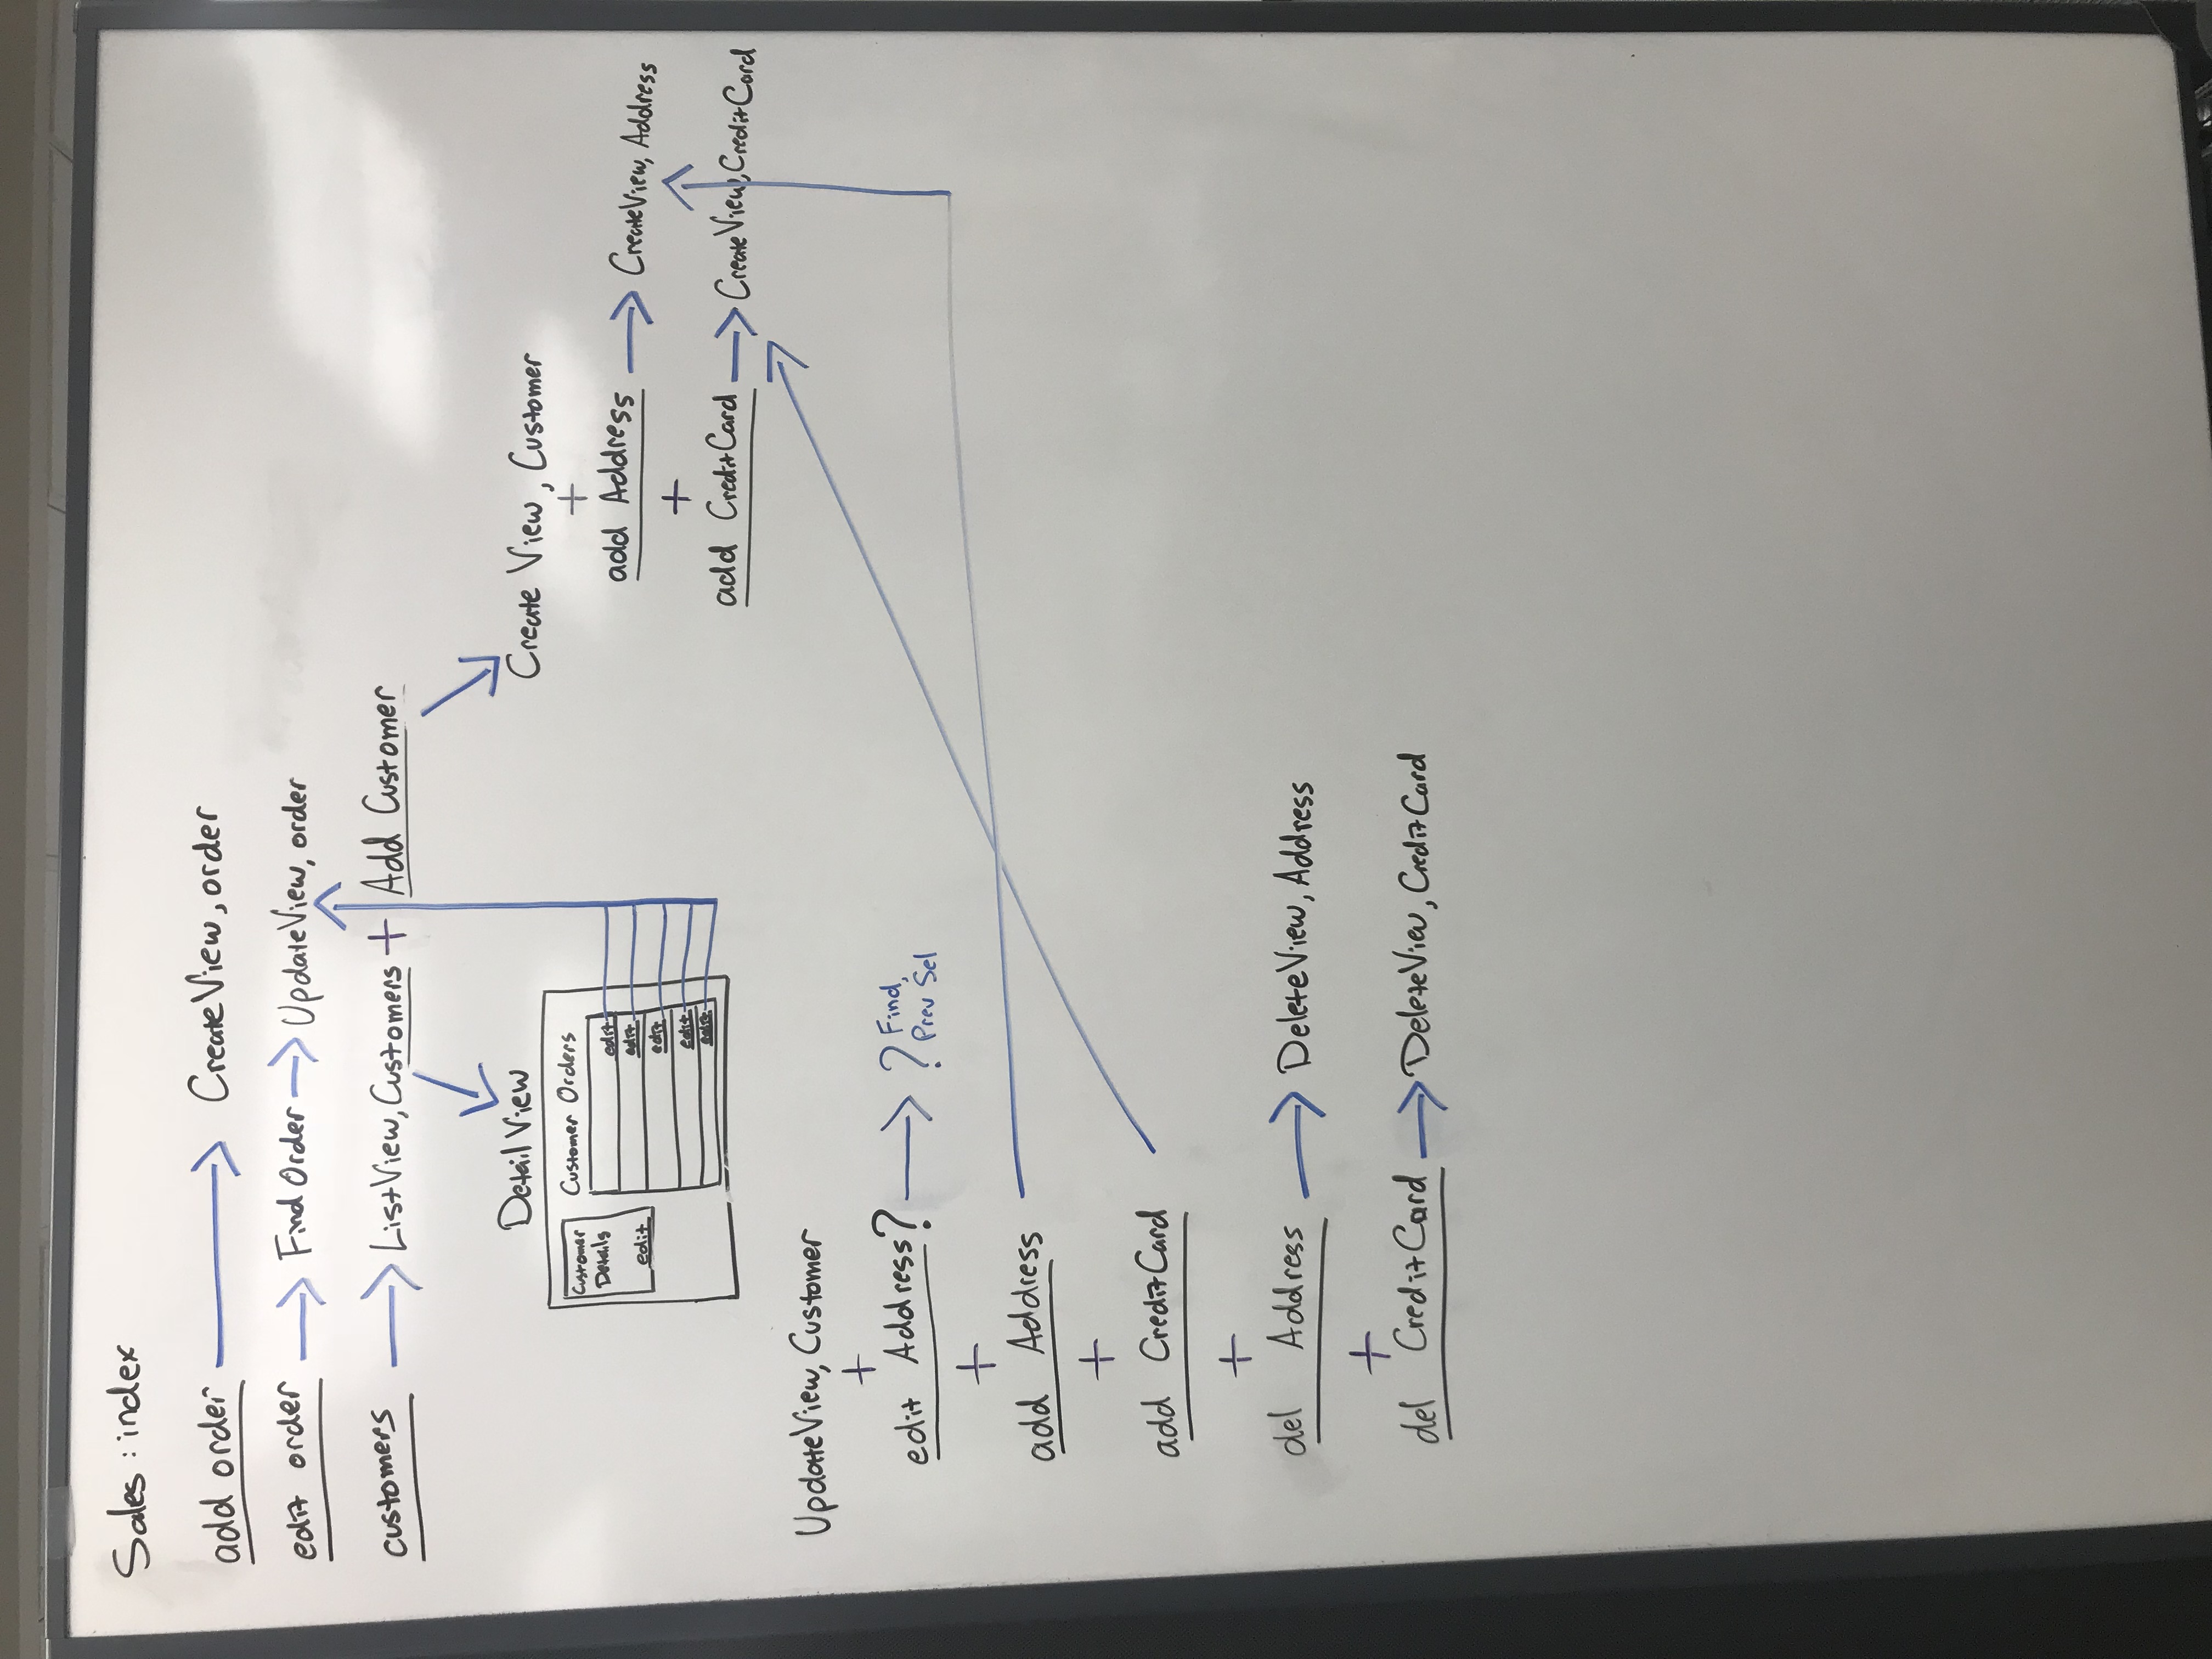 Sales : index
add order CreateView, order
edit order Find Order UpdateView, order
customers ListView, Customers + Add Customer
Detail View
Customer Details edit
Customer Orders
edit
edit
edit
edit
edit
Create View, Customer
+
add Address CreateView, Address
+
add CreditCard CreateView, CreditCard
UpdateView, Customer
+
edit Address? ? Find, Prev Sel
+
add Address
+
add CreditCard
+
del Address DeleteView, Address
+
del CreditCard DeleteView, CreditCard